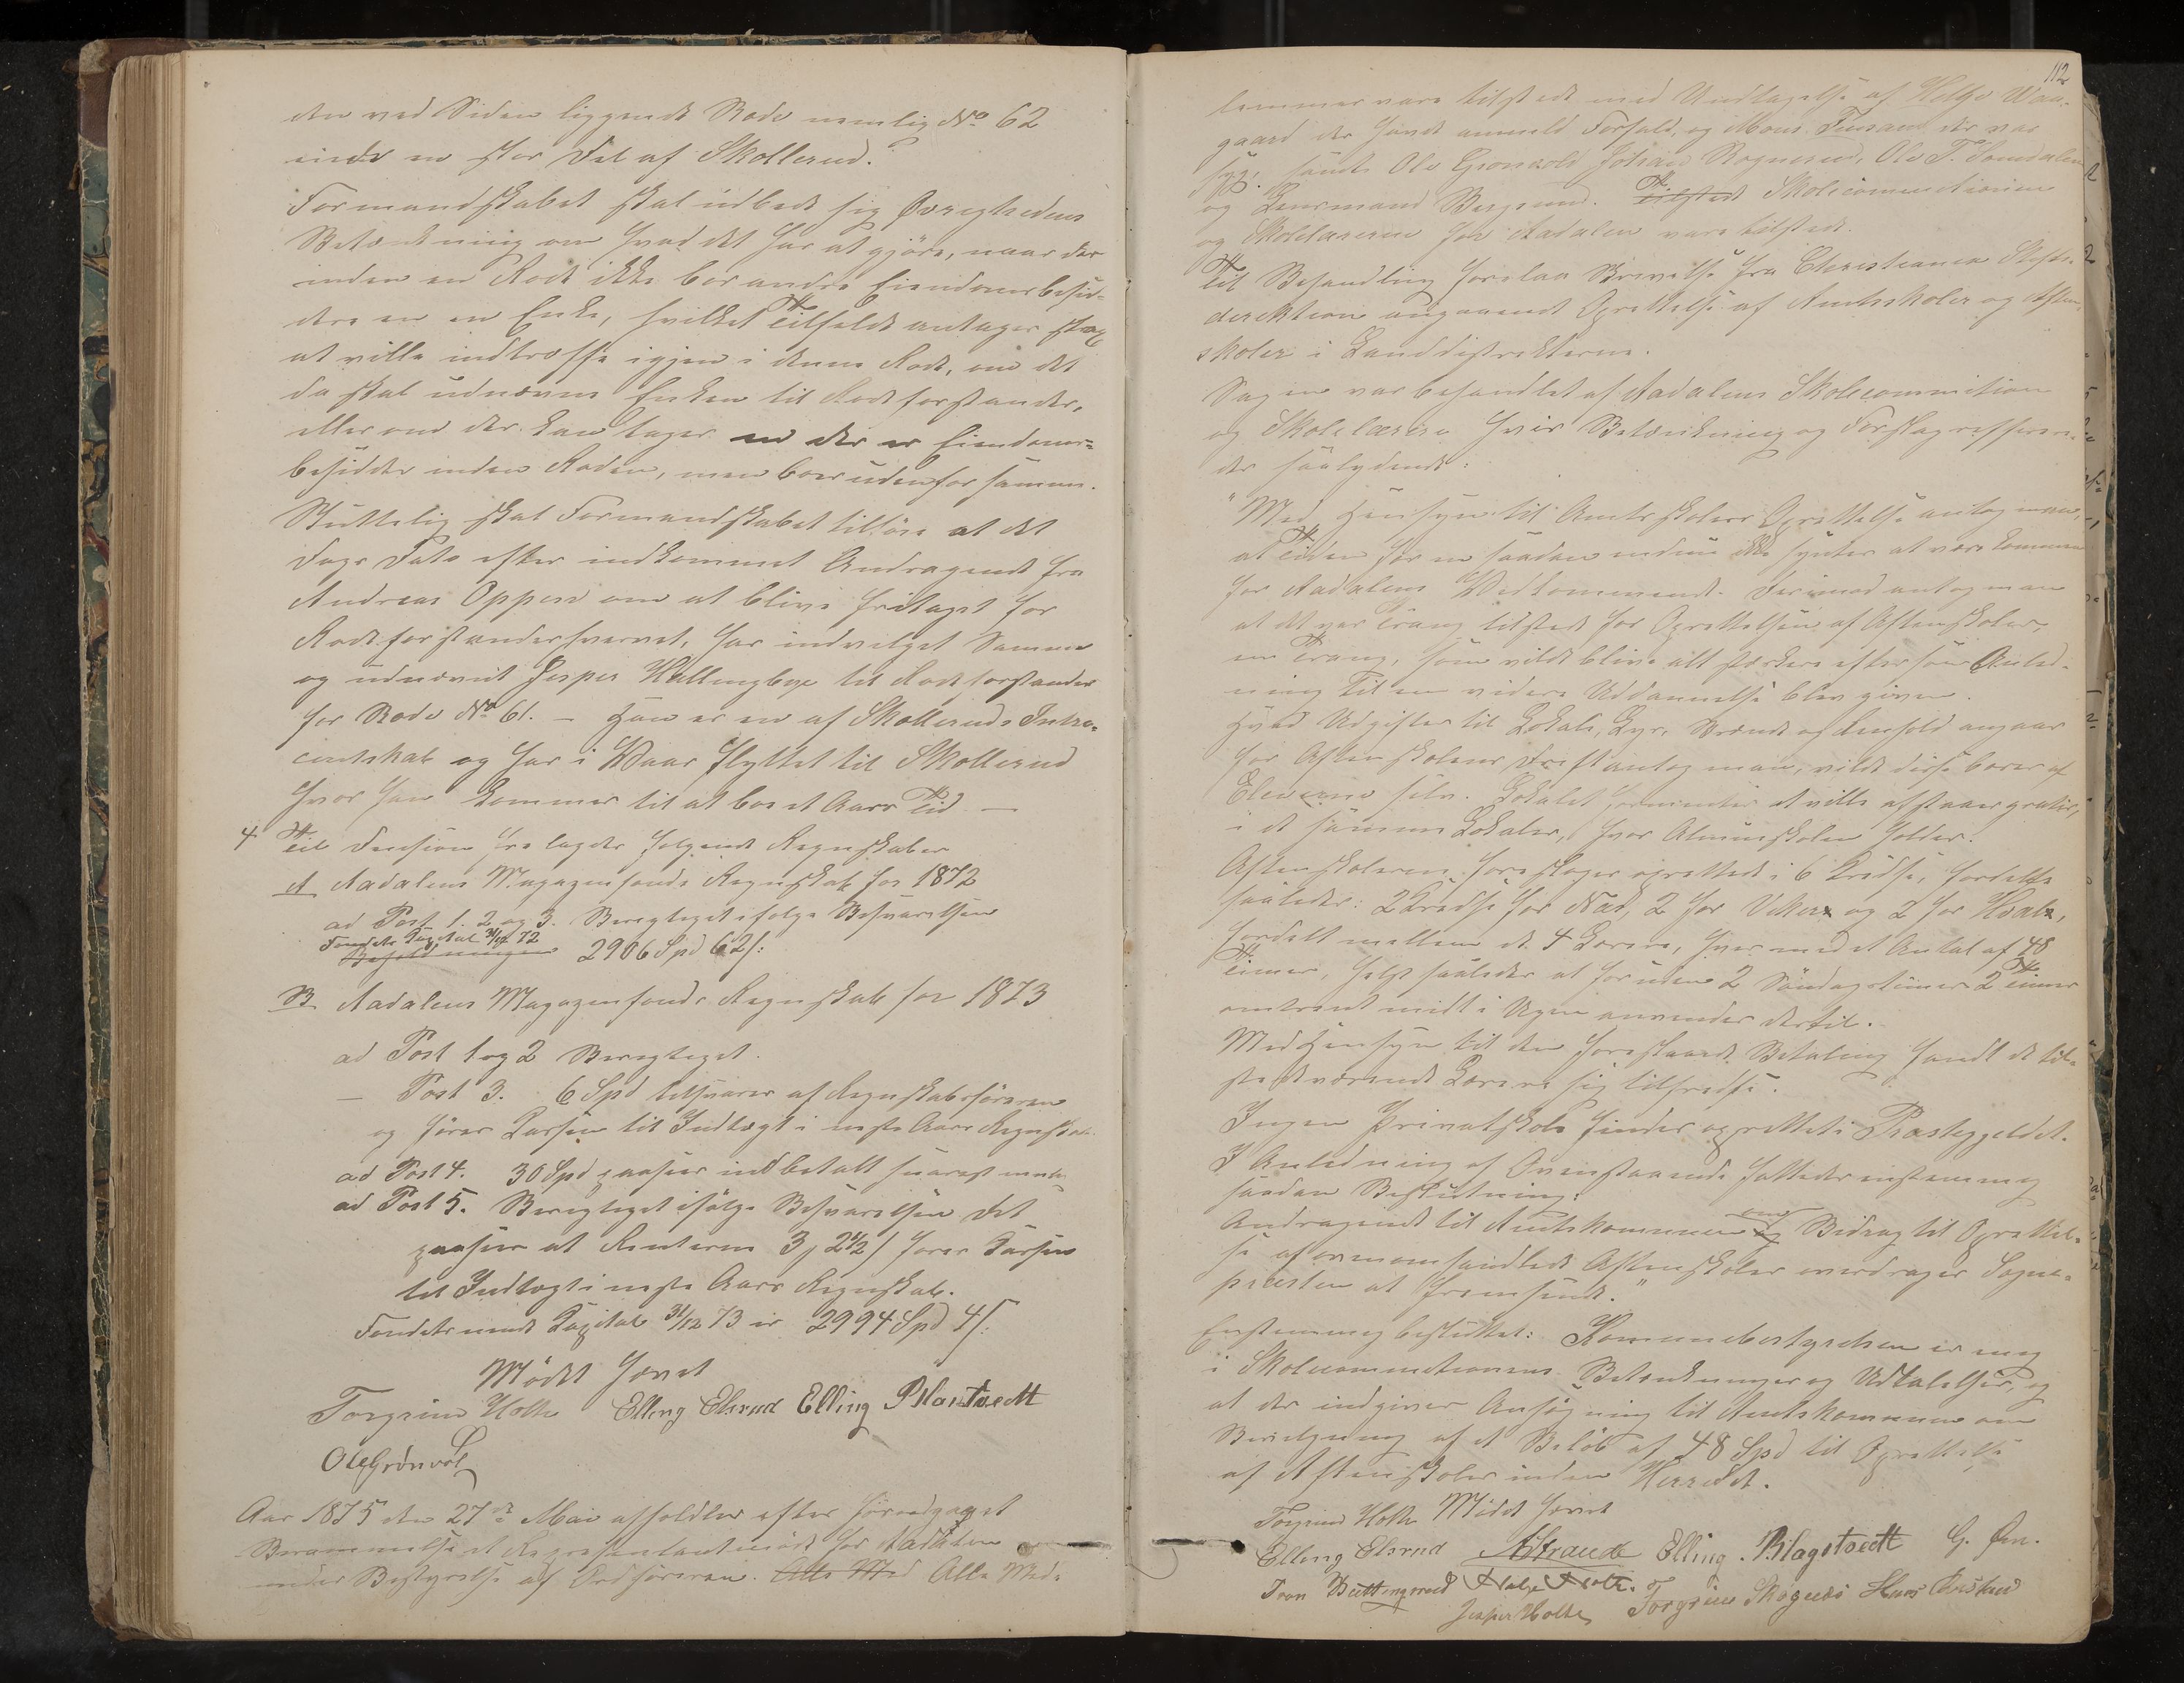 den ved Siden liggende Rode nemlig No 62
eier en stor Del af Skollerud.
Formandskabet skal udbede sig Øvrighedens
Betænkning om hvad det har at gjøre, naar der
inden en Rode ikke bor andre Eiendomsbesid-
dere en en Enke, hvilket Tilfælde antages strax
at ville indtræffe igjen i denne Rode, om det
da skal udnævne Enken til Rodeforstander,
eller om der kan tages en der er Eiendoms-
besidder inden Roden, men boer udenfor samme.
Sluttelig skal Formandskabet tilføie at det
Dags Dato efter indkommet Andragende fra
Andreas Oppen om at blive fritaget for
Rodeforstanderhvervet, har indvilget Samme
og udnævnt Jesper Hallingbye til Rodeforstander
for Rode No 61. – Han er en af Skolleruds Intre-
centskab og har i Vaar flyttet til Skollerud
hvor han kommer til at bo et Aars Tid –
4 Til Decision fre lagdes følgende Regnskaber
A Aadalens Magazinfonds Regnskab for 1872
ad Post 1. 2 og 3. Berigtiget ifølge Besvarelsen
Fondets Kapital 31/12 72
Beholdningen 2906 Spd 62 s:
B Aadalens Magazinfonds Regnskab for 1873
ad Post 1 og 2 Berigtiget.
– Post 3. 6 Spd tilsvares af Regnskabsføreren
og føres Kassen til Indtægt i neste Aars Regnskab
ad Post 4. 30 Spd paasees indbetalt snarest mulig
ad Post 5. Berigtiget ifølge Besvarelsen det
paasees at Renterne 3, 2 1/2 s føres Kassen
til Indtægt i neste Aars Regnskab.
Fondets Kapital 31/12 73 er 2994 Spd 4 s:
Mødet hævet
Torgrim Holte Elling Elsrud Elling P Blagstvedt
Ole Grønvol
Aar 1875 den 27de Mai afholdtes efter foregaaet
Berammelse et Repræsentantmøde for Aadalen
under Bestyrelse af Ordføreren. Alle Med Alle Med-
112
lemmer vare tilstede med Undtagelse af Helge Wan-
gaard der havde anmeldt Forfald, og Mons Finsand der var
syg, samt Ole Gronvold Johan Rognerud, Ole T. Somdalen
og Lensmand Bergsund. Tilstede Skolecommitionen
og Skolelærerne for Aadalen vare tilstede.
Til Behandling forelaa Skrivelse fra Christiania Stifts-
direktion angaaende Oprettelse af Amtsskoler og Aften-
skoler i Landdistrikterne.
Sagen var behandlet af Aadalens Skolecommition
og Skolelærere hvis Betænkning og Forslag
der saalydende:
"Med Hensyn til Amtsskolers Oprettelse antog man,
at Tiden for en saadan endnu ikke synes at være kommen
for Aadalens Vedkommende. Derimod antog man
at det var Trang tilstede for Oprettelsen af Aftenskoler,
en Trang, som vilde blive alt stærkere eftersom Anled-
ning til en videre Uddannelse blev given.
Hvad Udgifter til Lokale, Lys, Brænde og Renhold angaar
for Aftenskolens Drift antog man, vilde disse bæres af
Eleverne selv. Lokalet formentes at ville afstaaes gratis,
i de samme Lokaler, hvor Almueskolen holdes.
Aftenskolerne foreslaaes oprettet i 6 Kredse, fordelte
saaledes: 2 Kredse for Næs, 2 for Viker og 2 for Hval,
fordelt mellem de 4 Lærere, hver med et Antal af 48
Timer, helst saaledes at foruden 2 Søndagstimer 2 Timer
omtrent midt i Ugen anvendes dertil.
Med Hensyn til den foreslaaede Betaling fandt de til-
stedeværende Lærere sig tilfredse.
Ingen Privatskole findes oprettet i Præstegjeldet.
I Anledning af Ovenstaaende fattedes enstemmig
saadan Beslutning:
Andragende til Amtskommunen om Bidrag til Oprettel-
se af ovenomhandlede Aftenskoler overdrages Sogne-
præsten at fremsende."
Enstemmig besluttet: Kommunebestyrelsen er enig
i Skolecommitionens Betænkninger og Udtalelser, og
at der indgives Ansøgning til Amtskommunen om
Bevilgning af et Beløb af 48 Spd til Oprettelse
af Aftenskoler inden Herredet.
Mødet hævet
Torgrim Holte
Elling Elsrud A Strande Elling P. Blagstvedt G. Øen.
Iver Buttingsrud Helge Holte. Torgrim Skagnæs Hans
Jesper Holte